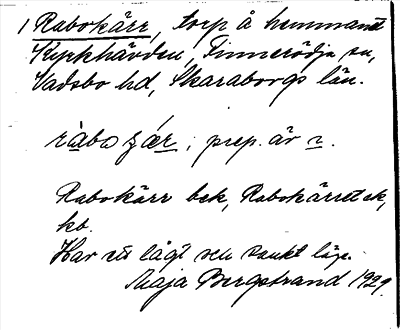 1 Rabokärr, torp å hemmanet
Kyrkhävden, Finnerödja sn,
Vadsbo hd, Skaraborgs län.
ràbo ɟæ̀r; prep. är 2.
Rabokärr bek, Rabokärret ek,
kb.
Har ett lågt och sankt läge.
Maja Bergstrand 1929.